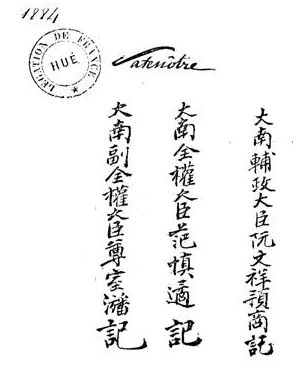 1884
LEGATION DE FRANCE
HUÉ
Patenôtre
大南輔政大臣阮文祥預商記
大南全權大臣范慎遹記
大南副全權大臣尊室瀊記